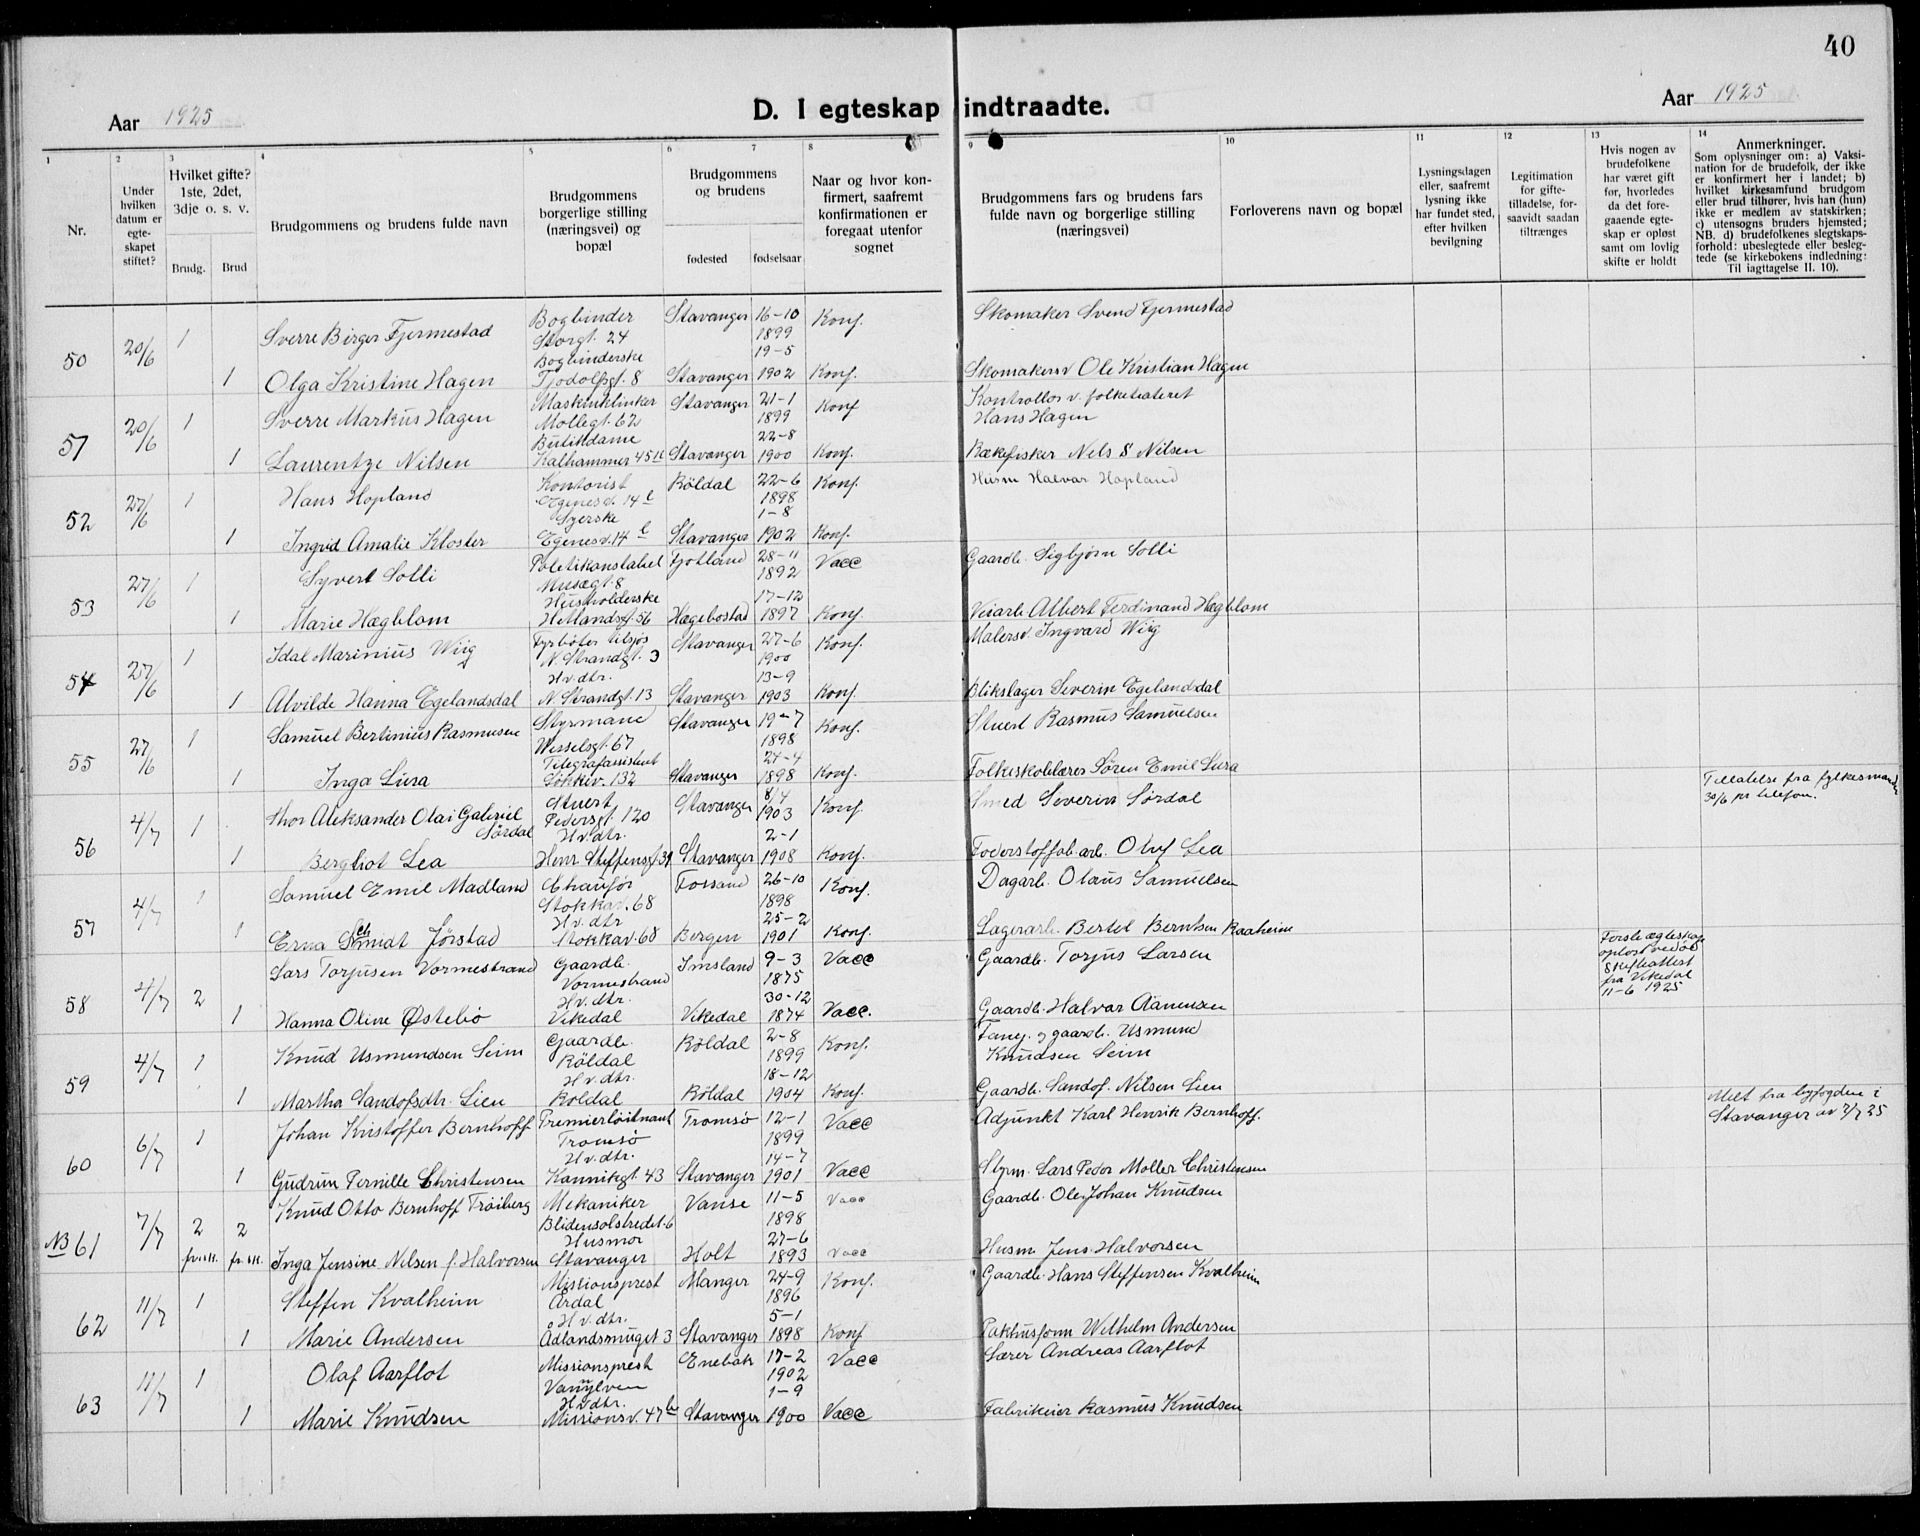 40
Aar 1925
D. I egteskap indtraadte.
Aar 1925
1 2 3 4 5 6 7 8 9 10 11 12 13 14
Nr.
Under hvilken datum er egte-skapet stiftet?
Hvilket gifte? 1ste, 2det, 3dje o. s. v.
Brudg. Brud
Brudgommens og brudens fulde navn
Brudgommens borgerlige stilling (næringsvei) og bopæl
Brudgommens og brudens
fødested fødselsaar
Naar og hvor kon-firmert, saafremt konfirmationen er foregaat utenfor sognet
Brudgommens fars og brudens fars fulde navn og borgerlige stilling (næringsvei)
Forloverens navn og bopæl
Lysningsdagen eller, saafremt lysning ikke har fundet sted, efter hvilken bevilgning
Legitimation for gifte-tilladelse, for-saavidt saadan tiltrænges
Hvis nogen av brudefolkene har været gift før, hvorledes da det fore-gaaende egte-skap er opløst samt om lovlig skifte er holdt
Anmerkninger.
Som oplysninger om: a) Vaksi-nation for de brudefolk, der ikke er konfirmert her i landet; b) hvilket kirkesamfund brudgom eller brud tilhører, hvis han (hun) ikke er medlem av statskirken; c) utensogns bruders hjemsted; NB. d) brudefolkenes slegtskaps-forhold: ubeslegtede eller besleg-tede (se kirkebokens indledning: Til iagttagelse II. 10).
50 20/6 1 Sverre Birger Fjermestad Bogbinder Storgt. 24 Stavanger 16-10 1899 Konf. Skomaker Svend Fjermestad
1 Olga Kristine Hagen Bogbinderske Tjodolfsgt. 8 Stavanger 19-5 1902 Konf. Skomakersv Ole Kristian Hagen
51 20/6 1 Sverre Markus Hagen Maskinklinker Møllegt. 62 Stavanger 21-1 1899 Konf Kontrollør v. folketeateret Hans Hagen
1 Laurentze Nilsen Butikdame Kalhammer 45 Stavanger 22-8 1900 Konf. Rækefisker Nels S Nilsen
52 27/6 1 Hans Hopland Kontorist Egenesv. 14 Röldal 22-6 1898 Konf. Husm Halvar Hopland
1 Ingrid Amalie Kloster Syerske Egenesv. 14 Stavanger 1-8 1902 Konf.
53 27/6 1 Syvert Solli Politikonstabel Musægt. 8 Fjotland 28-11 1892 Vacc Gaardb. Sigbjørn Solli
1 Marie Hægblom Husholderske Hetlandsgt. 56 Hægebostad 17-12 1897 Konf. Veiarb Albert Ferdinand Hægblom
54 27/6 1 Idal Marinius Wiig Fyrbøter tilsjøs N. Strandgt. 3 Stavanger 27-6 1900 Konf. Malersv. Ingvard Wiig
1 Alvilde Hanna Egelandsdal Hv. dtr. N. Strandgt. 13 Stavanger 13-9 1903 Konf Blikslager Severin Egelandsdal
55 27/6 1 Samuel Bertinius Rasmusen Styrmand Wesselsgt. 67 Stavanger 19-7 1898 Konf. Stuert Rasmus Samuelsen
1 Inga Lura Telegrafassistent Løkkev. 132 Stavanger 24-4 1898 Konf. Folkeskolelærer Søren Emil Lura
56 4/7 1 Thor Aleksander Olai Gabriel Sørdal Stuert Pedersgt. 120 Stavanger 8/4 1903 Konf. Smed Severin Sørdal Tillatelse fra fylkesmand 30/6 pr telefon.
1 Bergliot Lea Hv. dtr. Henr Steffensgt. 39 Stavanger 2-1 1908 Konf. Foderstoffab. arb. Oluf Lea
57 4/7 1 Samuel Emil Madland Chaufør Stokkav. 68 Fossand 26-10 1898 Konf. Dagarb. Olaus Samuelsen
1 Erna Schmidt Jørstad Hv. dtr Stokkav. 68 Bergen 25-2 1901 Konf. Lagerarb. Bertel Berntsen Raaheim
58 4/7 2 Lars Torjusen Vormestrand Gaardb. Vormestrand Imsland 9-3 1875 Vacc Gaardb. Torjus Larsen Første ægteskap opløst v død Skifteattest fra Vikedal 11-6 1925
1 Hanna Oline Østebø Hv. dtr. Vikedal Vikedal 30-12 1874 Vacc. Gaardb. Halvar Aanensen
59 4/7 1 Knud Usmundsen Seim Gaardb. Röldal Röldal 2-8 1899 Konf. Fang. og gaardb. Usmund Knudsen Seim
1 Martha Sandofsdtr. Lien Hv. dtr. Röldal Röldal 18-12 1904 Konf. Gaardb. Sandof. Nilsen Lien
60 6/7 1 Johan Kristoffer Bernhoff Premierløitnant Tromsø Tromsø 12-1 1899 Vacc Adjunkt Karl Henrik Bernhoff. Melt fra byfogden i Stavanger av 2/7 25
1 Gudrun Pernille Christensen Hv. dtr. Kannikgt. 43 Stavanger 14-7 1901 Vacc Styrm. Lars Peder Møller Christensen
NB 61 7/7 2 2 Knud Otto Bernhoff Trøiberg Mekaniker Blidensolstredet 6 Vanse 11-5 1898 Vacc Gaardb. Ole Johan Knudsen
fr.sk. fr. sk. Inga Jensine Nilsen f. Halvorsen Husmor Stavanger Holt 27-6 1893 Vacc Husm Jens Halvorsen
62 11/7 1 Steffen Kvalheim Missionsprest Årdal Manger 24-9 1896 Konf. Gaardb. Hans Steffensen Kvalheim
1 Marie Andersen Hv. dtr. Adlandsmuget 3 Stavanger 5-1 1898 Konf Pakhusform Wilhelm Andersen
63 11/7 1 Olaf Aarflot Missionsprest Vannylven Enebak 17-2 1902 Vacc Lærer Andreas Aarflot
1 Marie Knudsen Hv. dtr. Missionsv. 47 Stavanger 1-9 1900 Vacc Fabrikeier Rasmus Knudsen